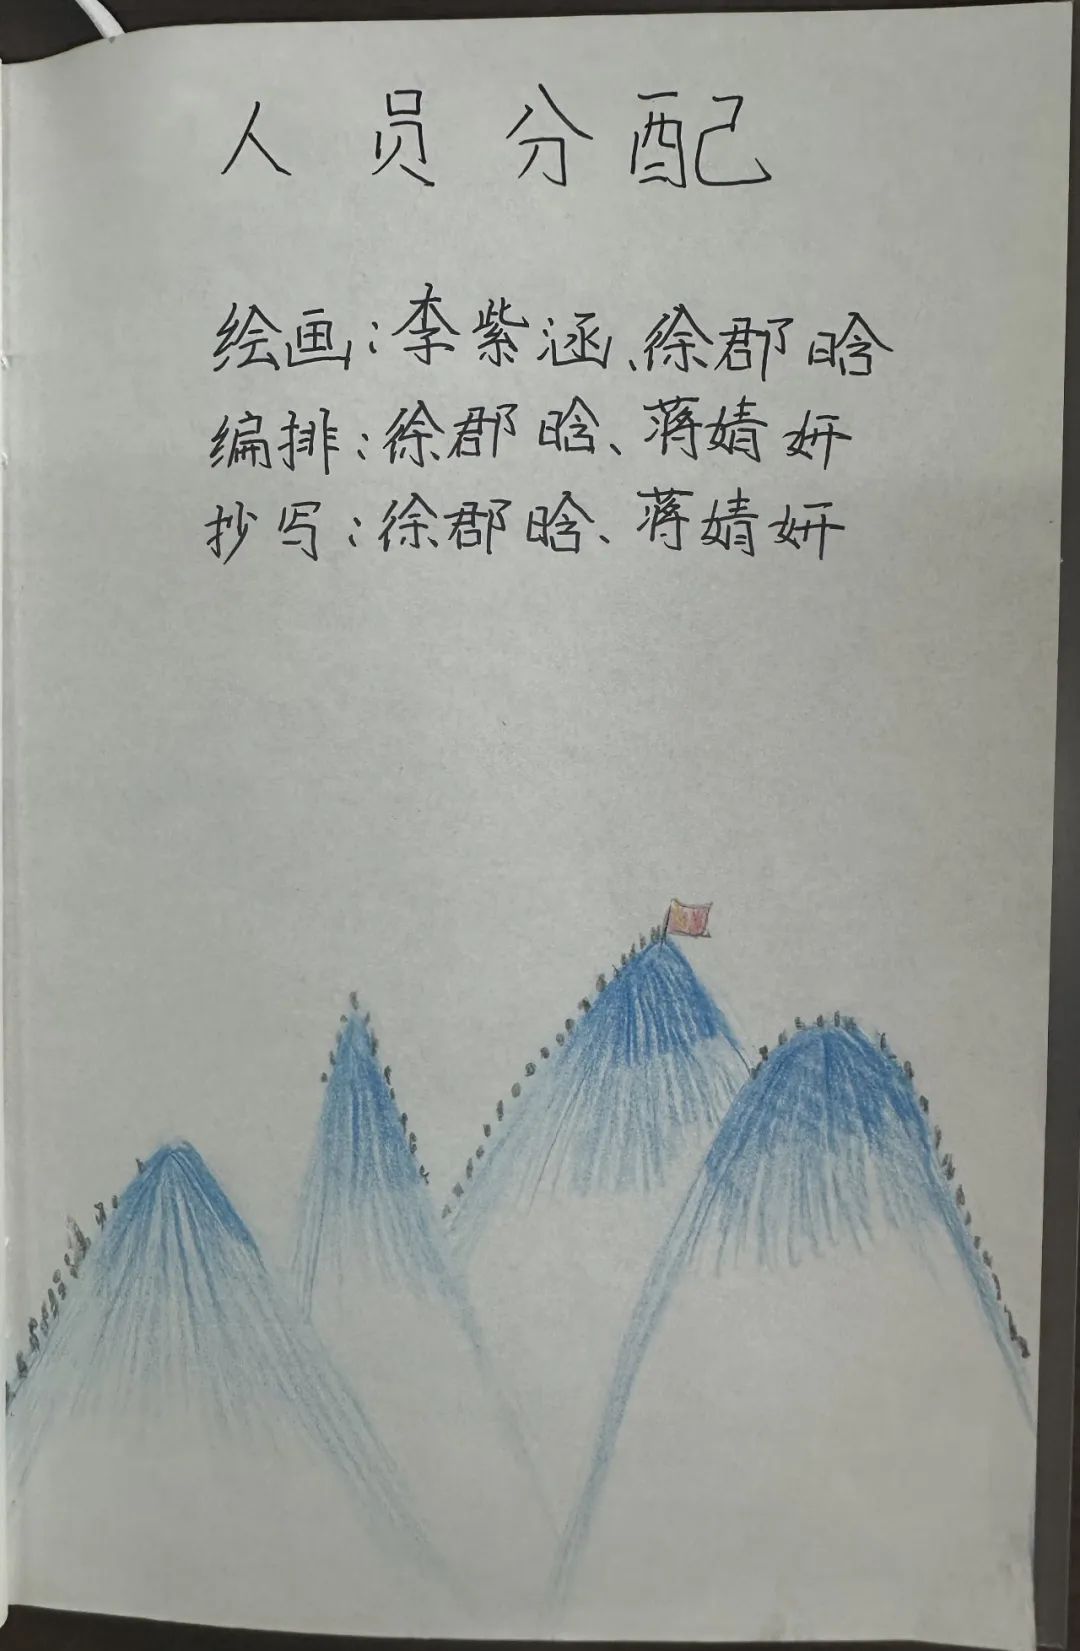 人员分配
绘画:李紫涵、徐郡晗
编排:徐郡晗、蒋婧妍
抄写:徐郡晗、蒋婧妍